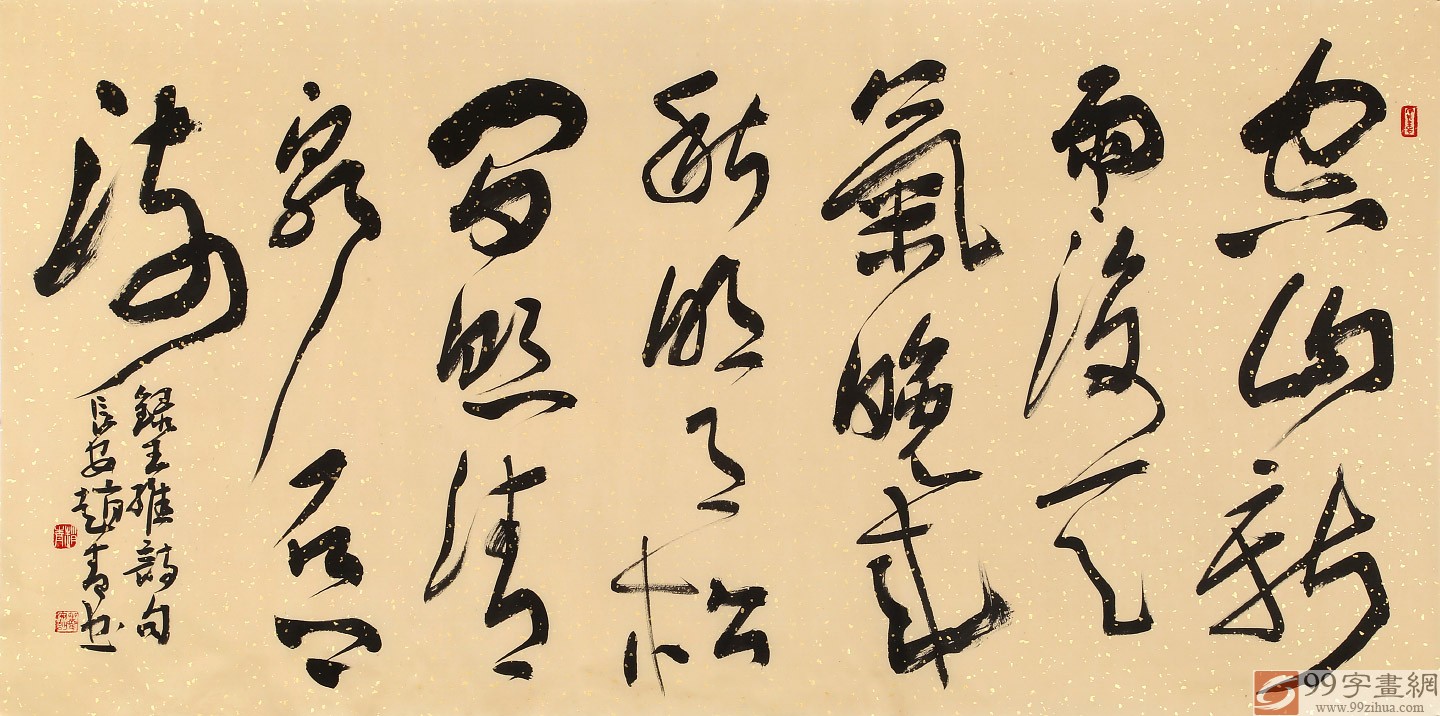 空山新
雨後天
氣晚来
秋明月松
間照清
泉石上
流
錄王維詩句
長安趙青书
99字畫網
www.99zihua.com